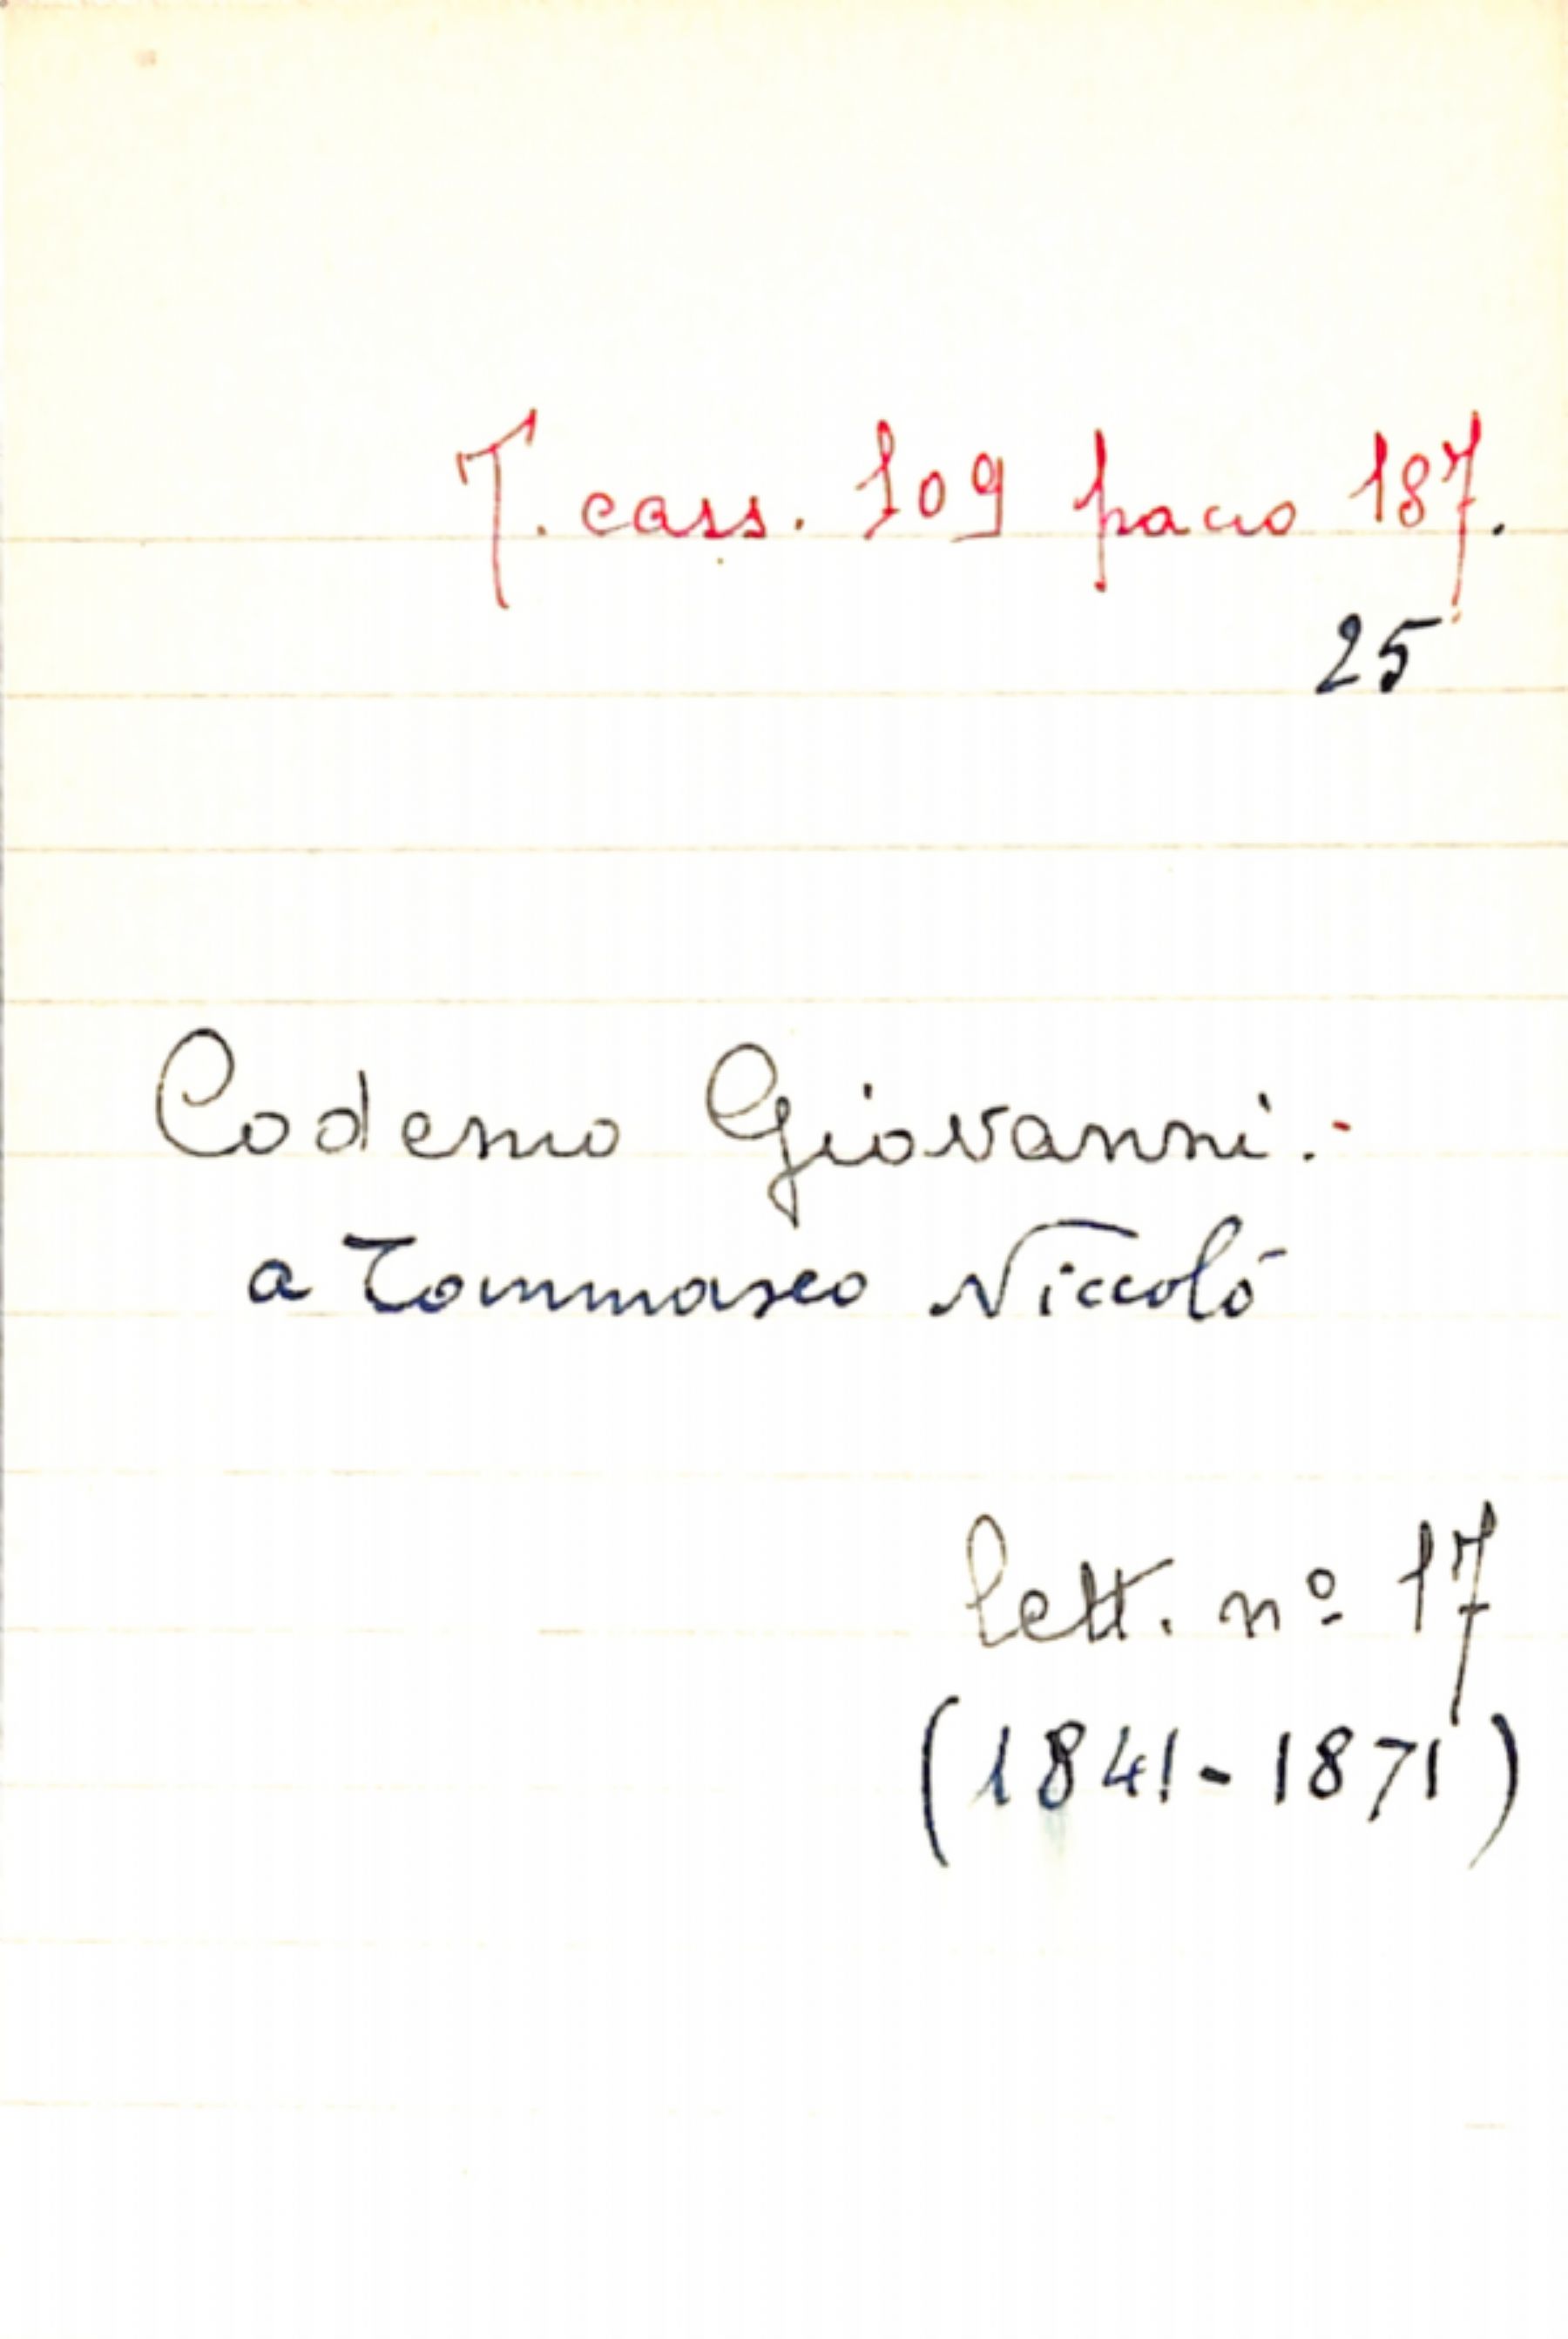 T. cass. 109 pacco 187.
25
Codemo Giovanni.-
a Tommaseo Niccolò
lett. nº 17
(1841-1871)